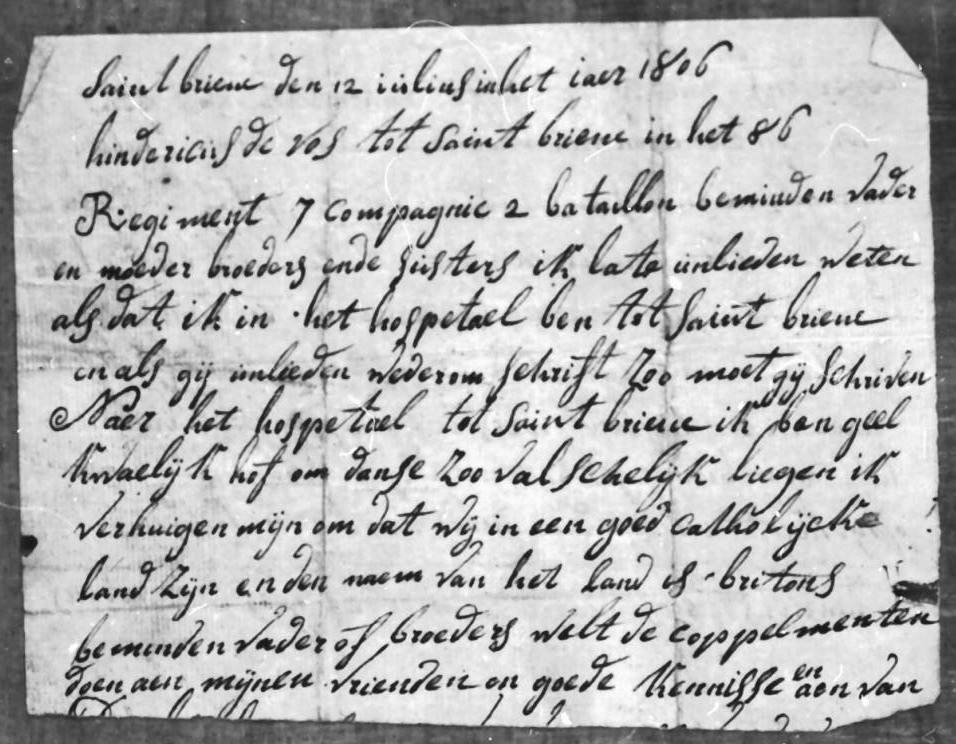 Saint brieuc den 12 iulius inhet iaer 1806
hindericus de vos tot Saint brieuc in het 86
Regiment 7 compagnie 2 bataillon beminden vader
en moeder broeders ende susters ik late ünlieden weten
als dat ik in het hospetael ben tot Saint brieuc
en als gij ünlieden wederom schrift zoo moet gij schriven
Naer het hospetael tot Saint brieuc ik ben geel
kwaelijk hof om danse zoo valschelijk liegen ik
verhuigen mijn om dat wij in een goed catholijcke
land zijn en den naem van het land is britons
beminden vader of broeders welt de coppelmenten
doen aen mijnen vrienden en goede kennisse en aen van